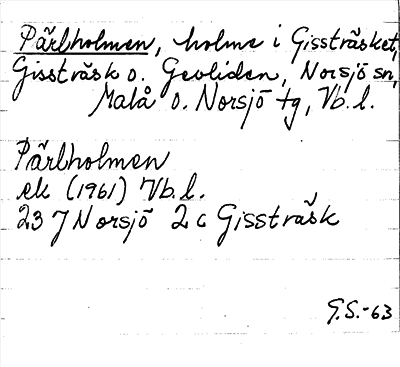 Pärlholmen, holme i Gissträsket,
Gissträsk o. Gevliden, Norsjö sn,
Malå o. Norsjö tg, Vb. l.
Pärlholmen
ek (1961) Vb. l.
23 J Norsjö 2 c Gissträsk
G.S.-63